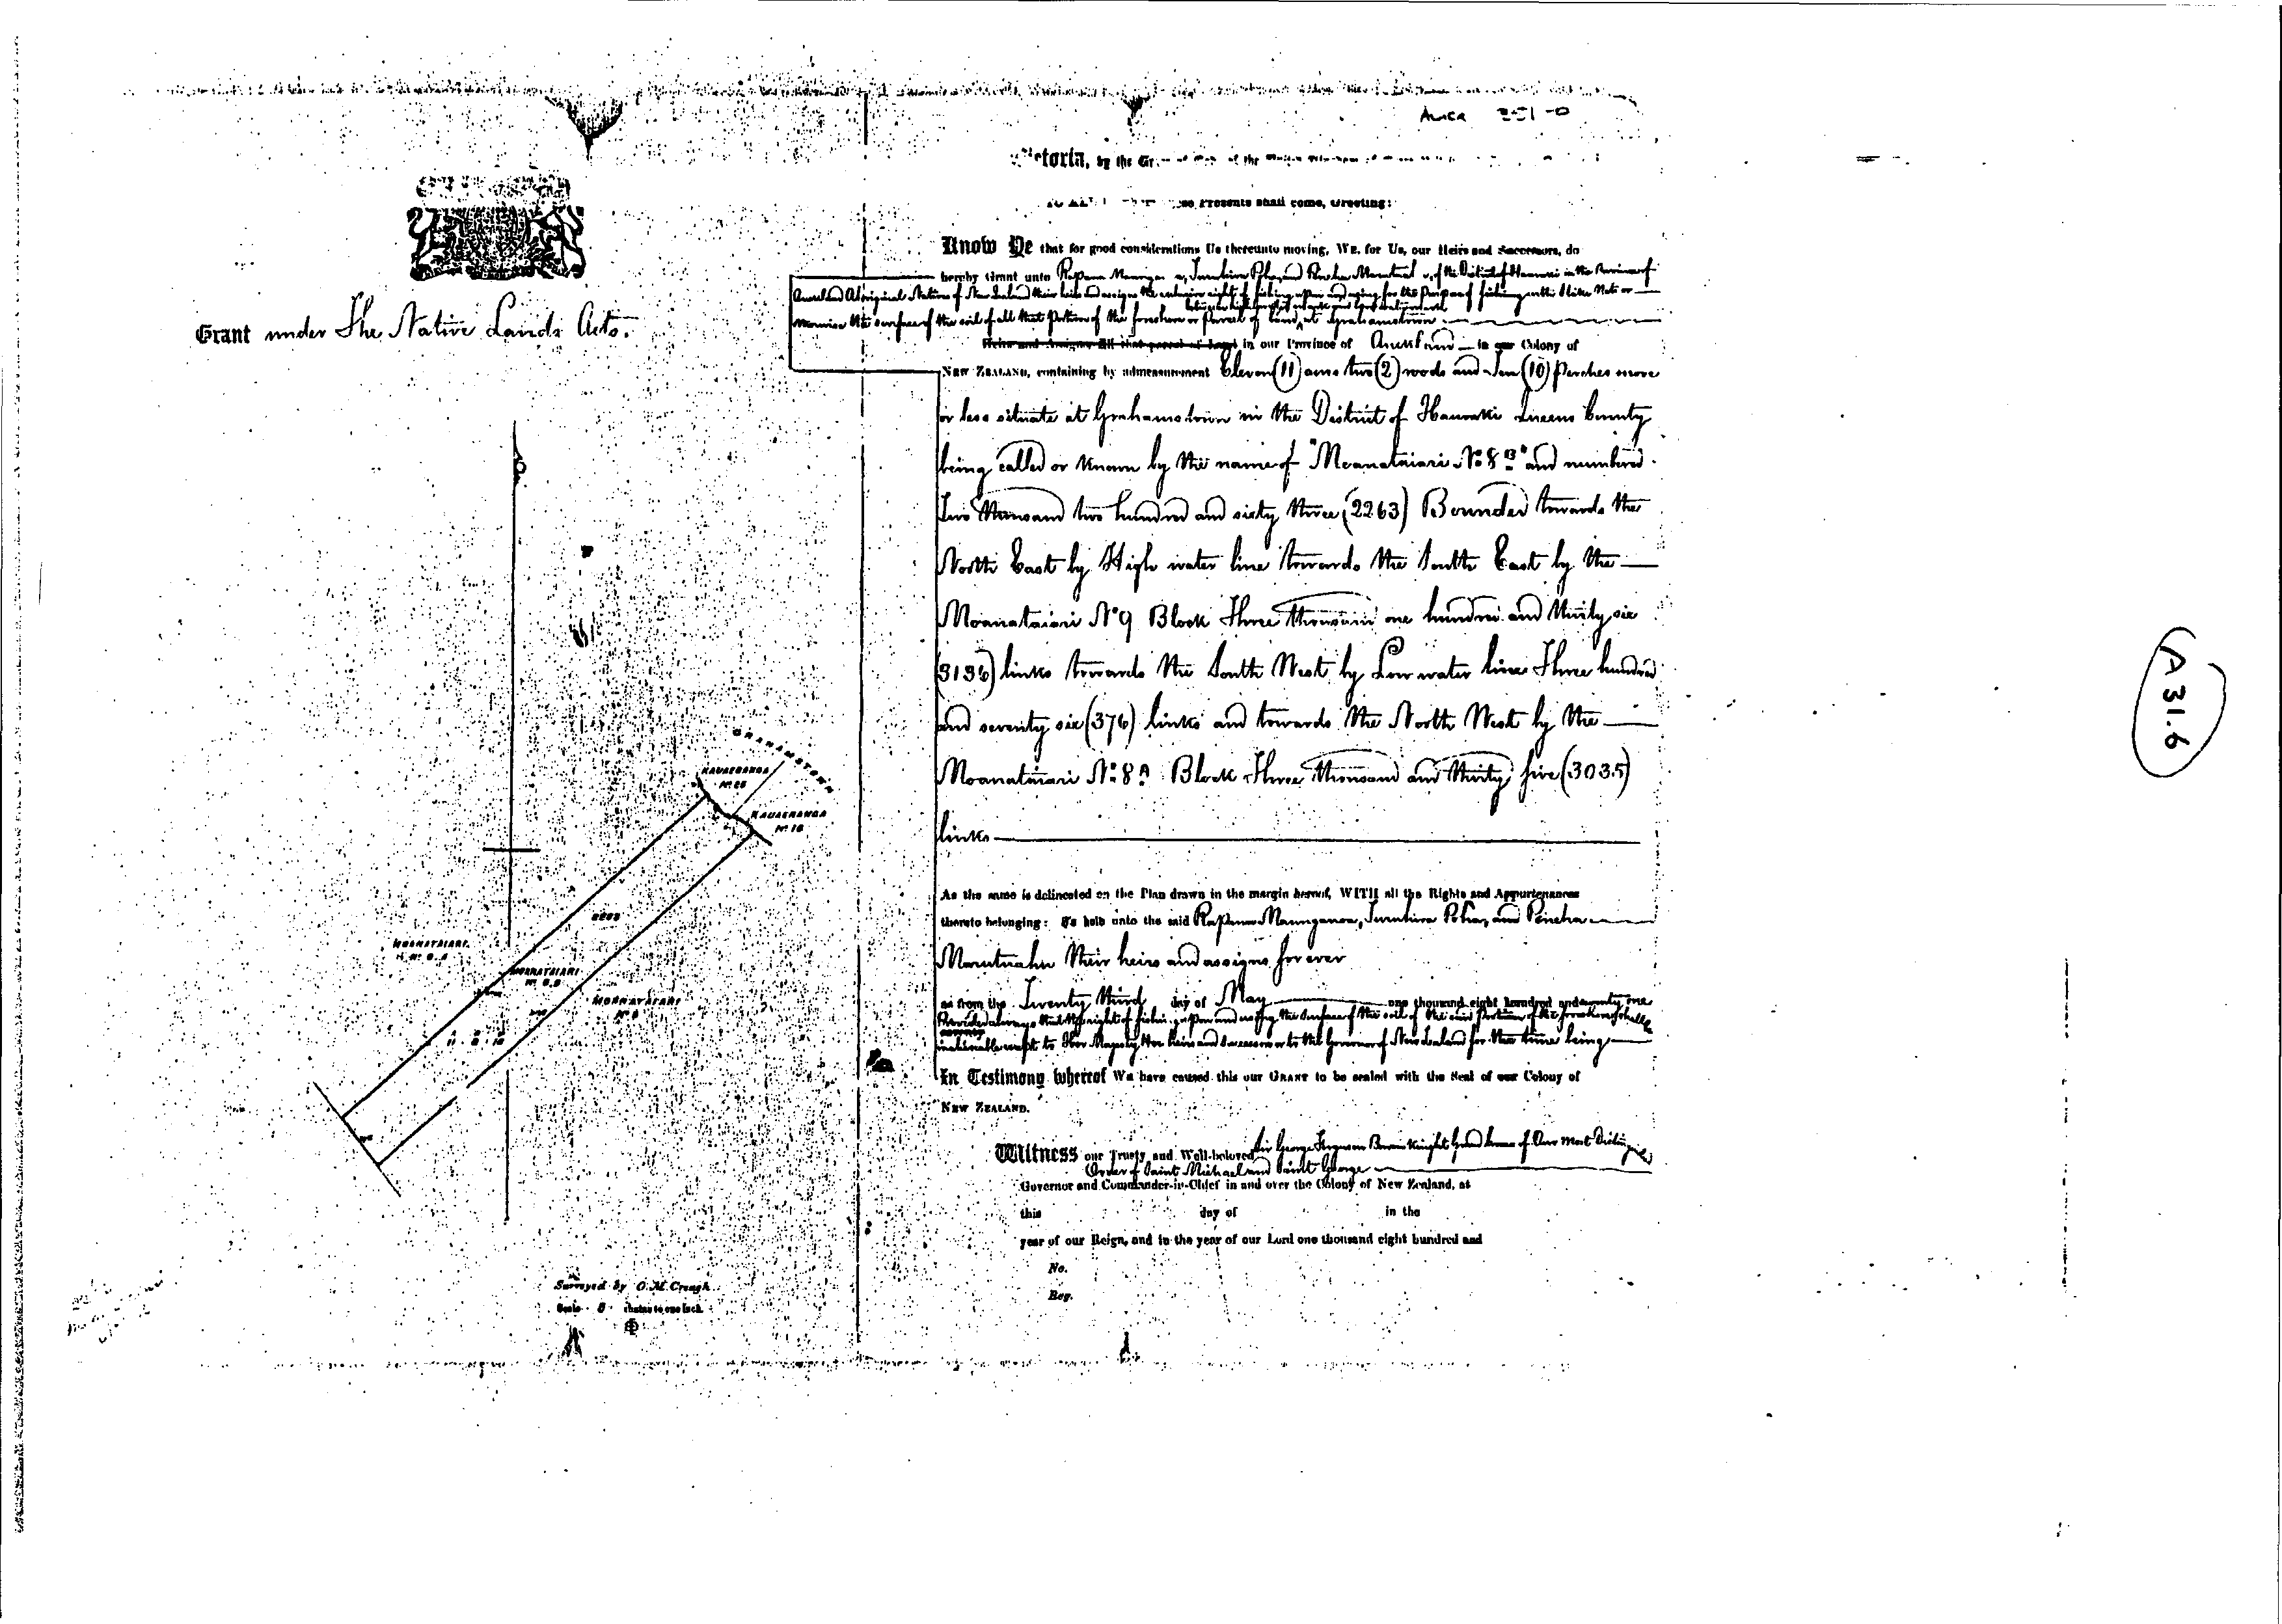 Grant under The Native Lands Acts.
Victoria, by the
Presents shall come, Greeting:
Know Ye that for good considerations Us thereunto moving, WE, for Us, our Heirs and Successors, do
hereby Grant unto of the District of Hauraki in the Province of
Auckland Aboriginal Natives of New Zealand their heirs and assigns the exclusive right of fishing upon and using for the purpose of fishing
the surface of the soil of all that portion of the foreshore or parcel of land at Grahamstown
Heirs and Assigns All that parcel of Land in our Province of Auckland in our Colony of
NEW ZEALAND, containing by admeasurement Eleven (11) acres two (2) roods and Ten (10) perches more
or less situate at Grahamstown in the District of Hauraki Queens County
being called or known by the name of "Moanataiari No 8B" and numbered
Two thousand two hundred and sixty three (2263) Bounded towards the
North East by High water line towards the South East by the
Moanataiari No 9 Block Three thousand one hundred and thirty six
(3136) links towards the South West by Low water line Three hundred
and seventy six (376) links and towards the North West by the
Moanataiari No 8A Block Three thousand and thirty five (3035)
links
As the same is delineated on the Plan drawn in the margin hereof, WITH all the Rights and Appurtenances
thereto belonging: To hold unto the said
their heirs and assigns for ever
as from the Twenty third day of May one thousand eight hundred and seventy one
Provided always that the right of fishing upon and using the surface of the soil of the said portion of the foreshore shall be
inalienable except to Her Majesty Her heirs and Successors or to the Governor of New Zealand for the time being
In Testimony whereof We have caused this our GRANT to be sealed with the Seal of our Colony of
NEW ZEALAND.
Witness our Trusty and Well-beloved Sir George Ferguson Bowen Knight Grand Cross of Our Most Distinguished
Order of Saint Michael and Saint George
Governor and Commander-in-Chief in and over the Colony of New Zealand, at
this day of in the
year of our Reign, and in the year of our Lord one thousand eight hundred and
No.
Reg.
GRAHAMSTOWN
KAUAERANGA
KAUAERANGA
No 16
MOANATAIARI
No 8.A
MOANATAIARI
No 8.B
MOANATAIARI
No 9
A R P
11 . 2 . 10
Surveyed by O. M. Creagh.
Scale 5 chains to one inch.
A31.6